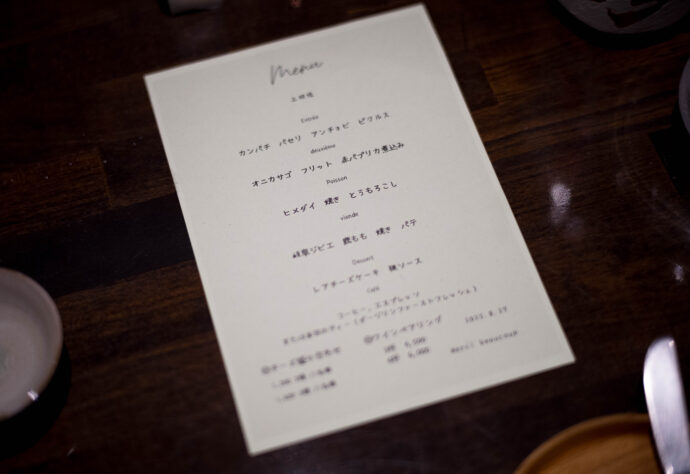 Menu
Entrée
カンパチ パセリ アンチョビ ピクルス
deuxième
オニカサゴ フリット 赤パプリカ煮込み
Poisson
ヒメダイ 焼き とうもろこし
viande
岐阜ジビエ 鹿もも 焼き パテ
Dessert
レアチーズケーキ 桃ソース
Café
コーヒー、エスプレッソ
または本日のティー（ダージリンファーストフラッシュ）
ワインペアリング
Merci beaucoup